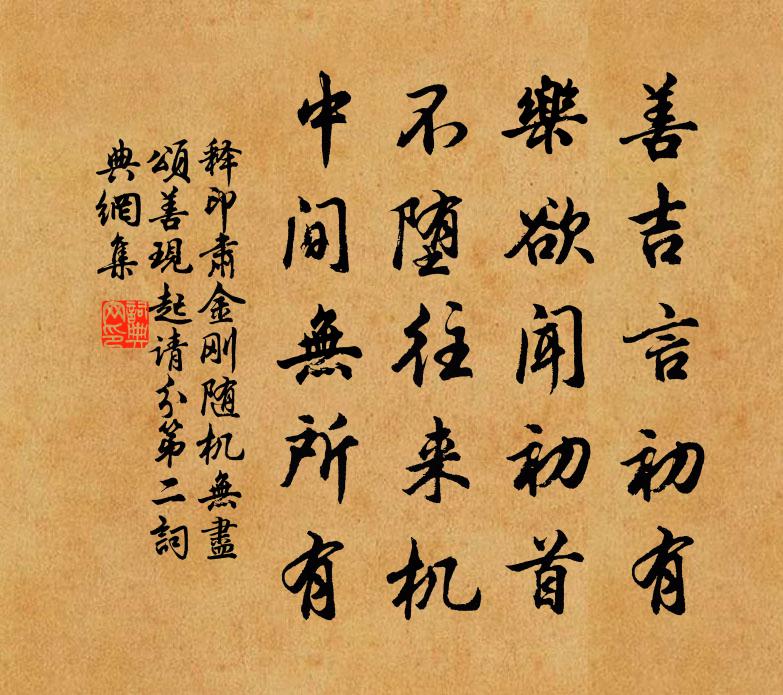 善吉言初有
樂欲聞初首
不堕往来机
中间無所有
释印肃金刚随机無盡
頌善現起请分第二詞
典網集
詞典網印